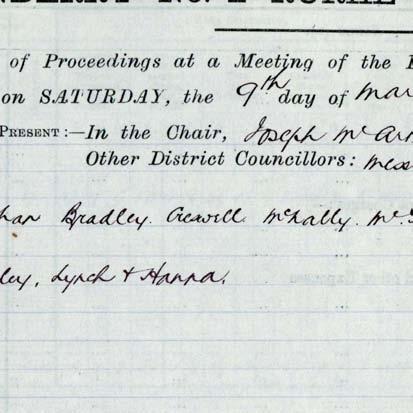 of Proceedings at a Meeting of the
on SATURDAY, the 9th day of Mar
PRESENT :—In the Chair, Joseph McAr
Other District Councillors: Mess
Bradley. Creswell. McNally. Mc
ley, Lynch & Hanna.